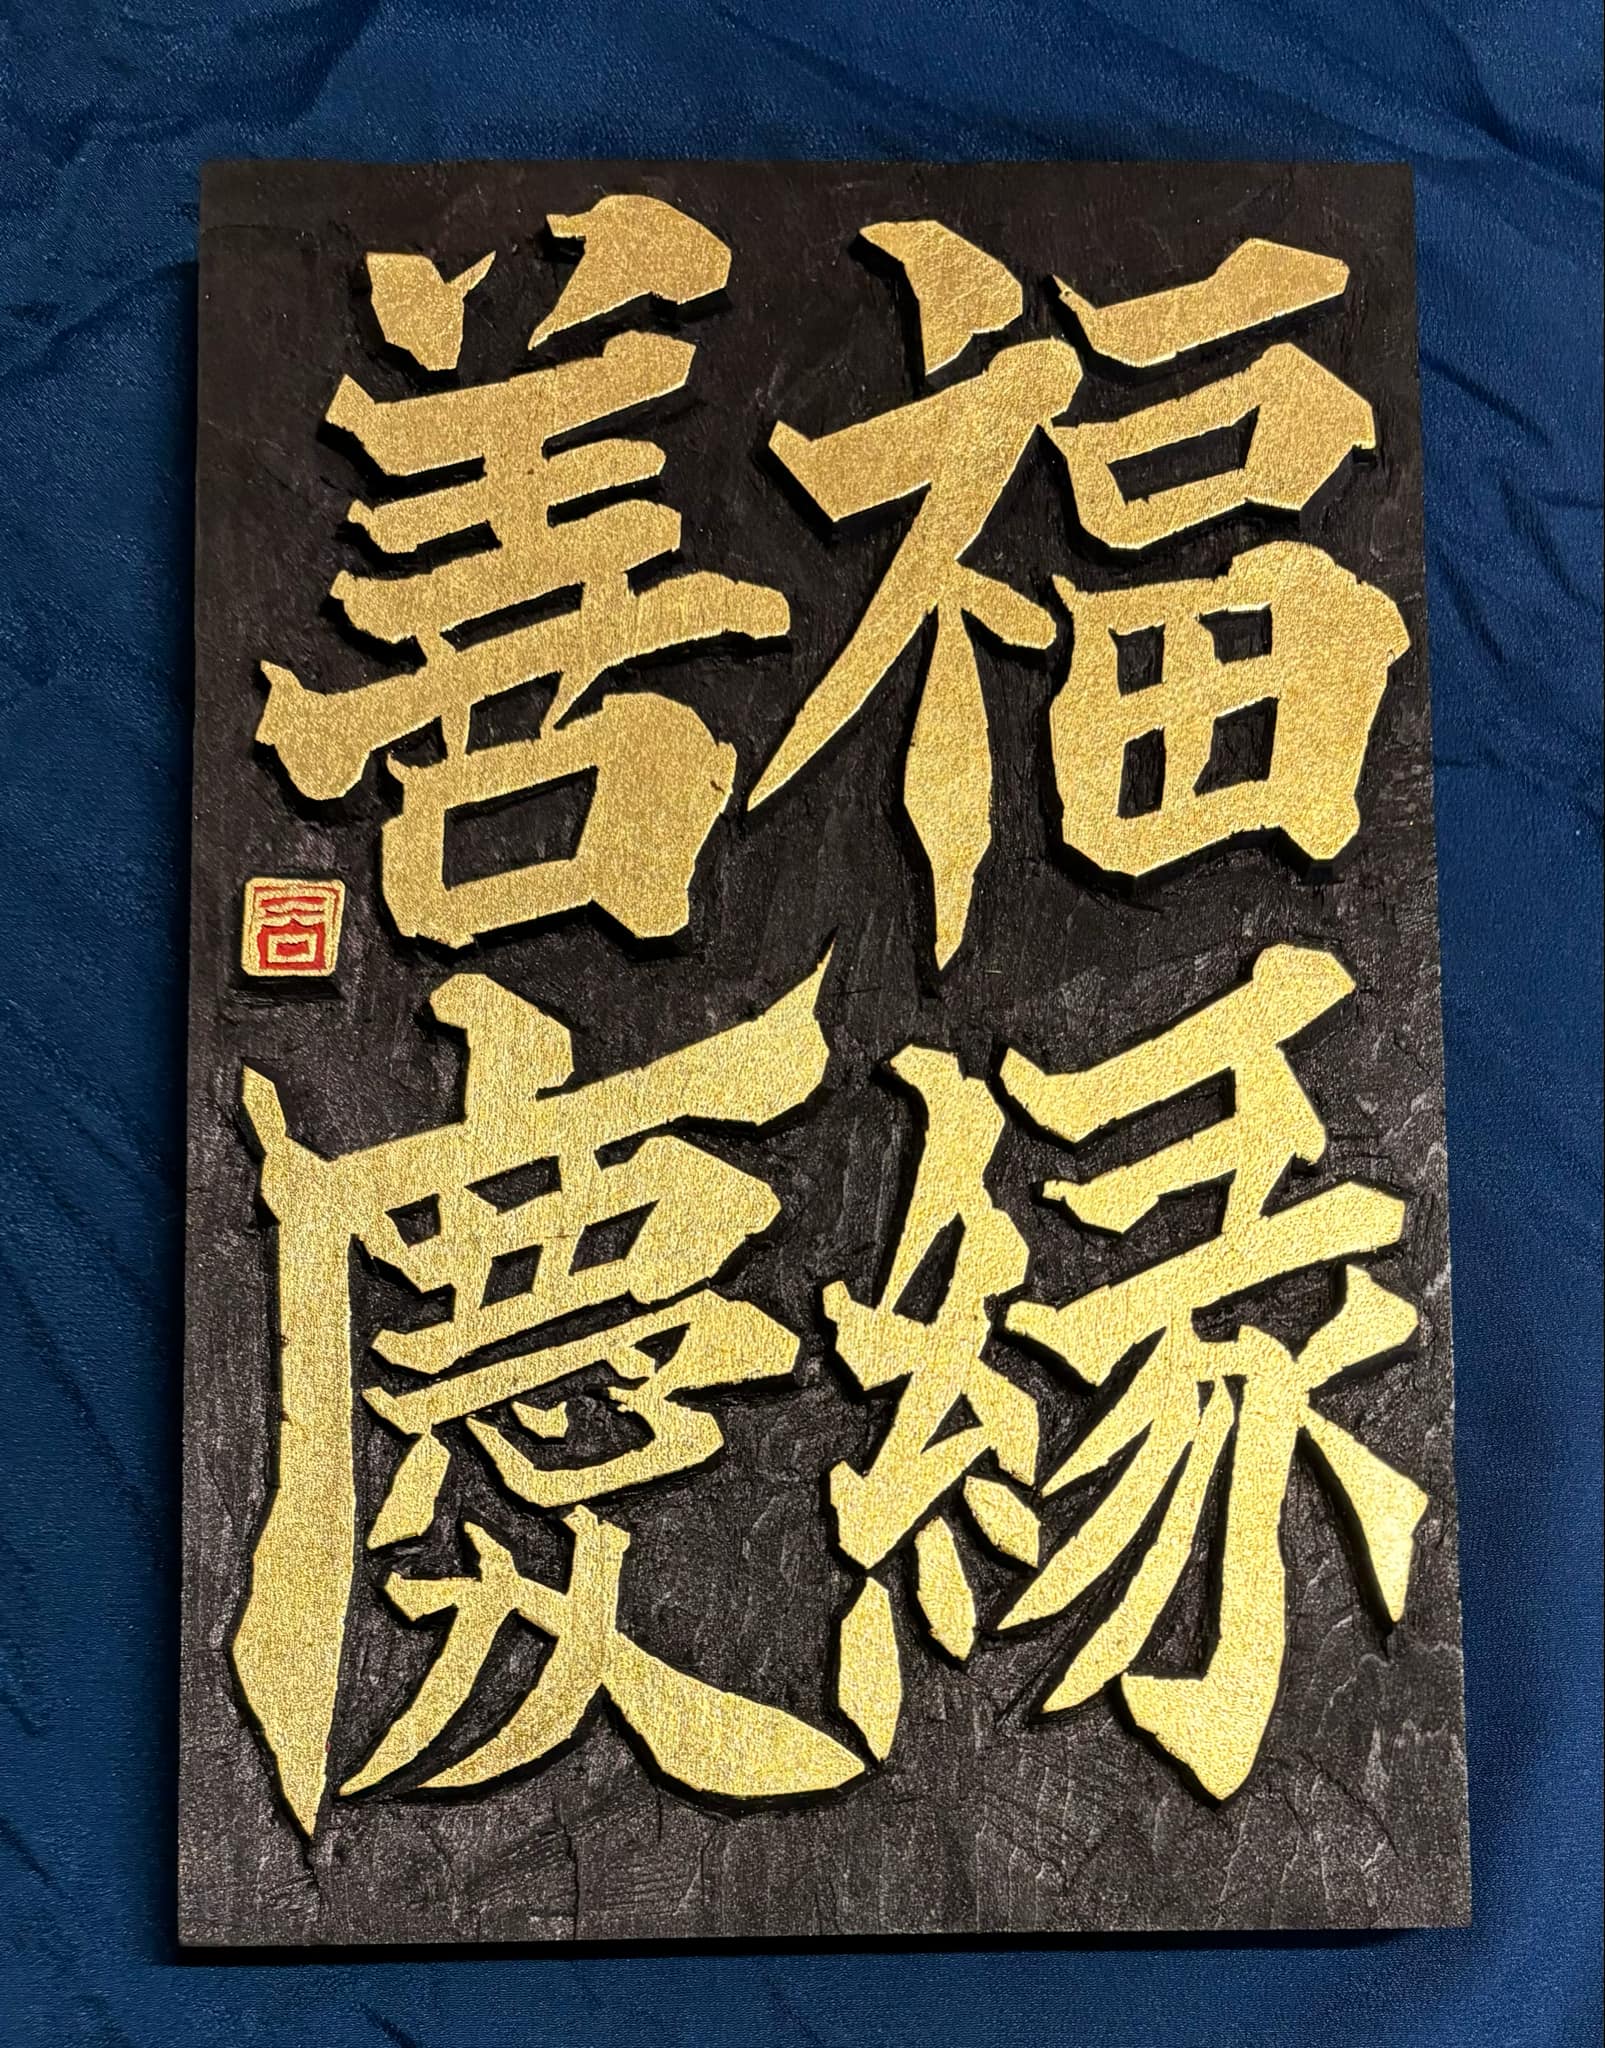 福縁
善慶